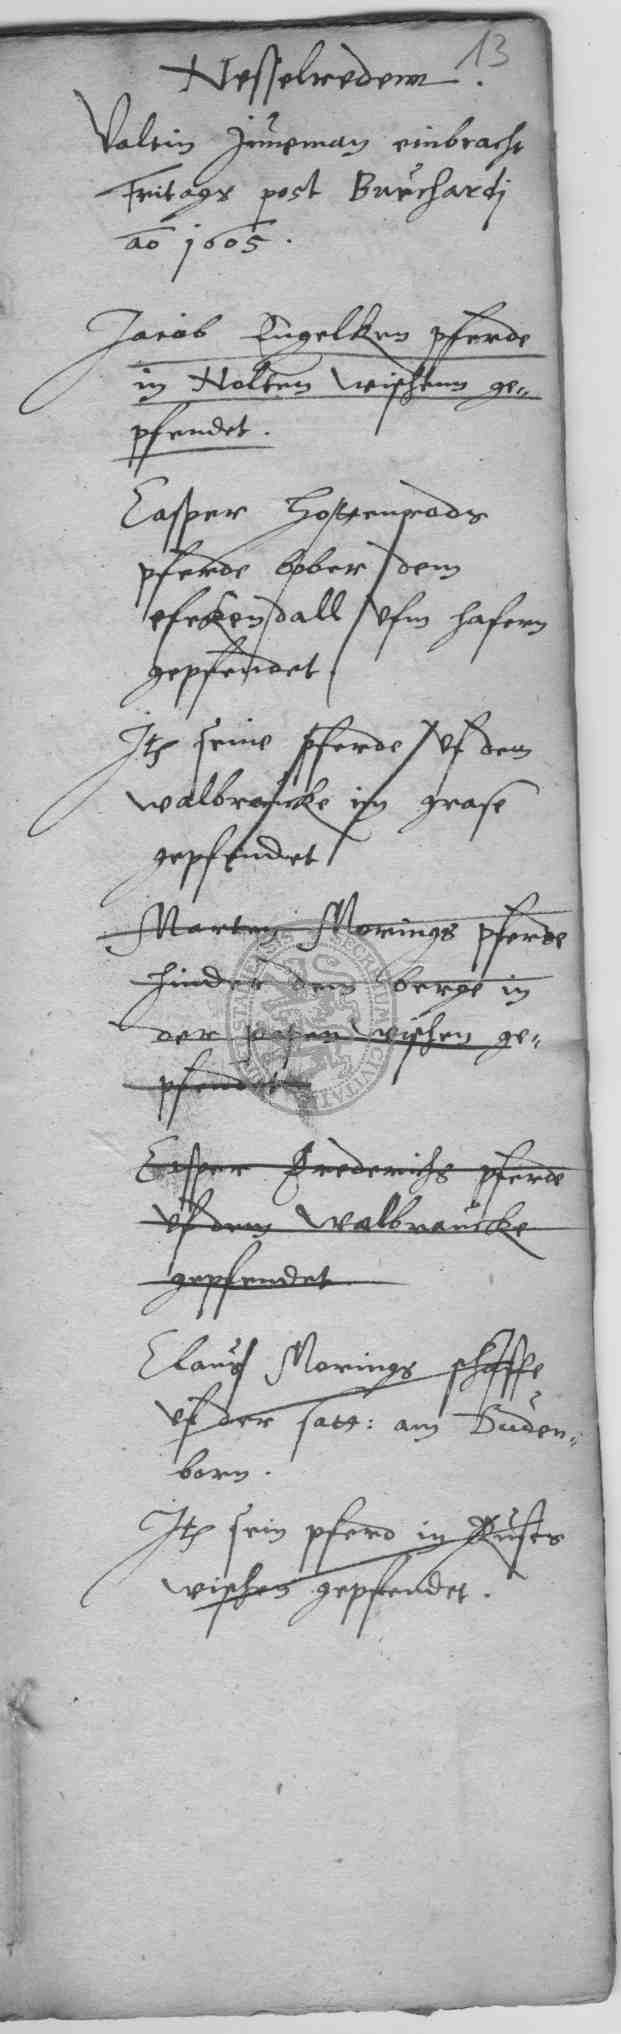 13
Nesselredenn.
Valtin Juneman einbracht
Fritags post Burchardj
ao 1605.
Jacob Engelken pferde
in Nolten wischenn ge-
pfendet.
Casper Hottenrods
pferde bober dem
efeken dall ufm hafern
gepfendet
Jt seine pferde uf dem
walbraucke im grase
gepfendet
Marten Morings pferde
hinder dem berge in
der wischen ge-
pfendet
Casper Frederichs pferde
uf dem Walbraucke
gepfendet
Claus Morings schaffe
uf der satt: am Duden-
born.
Jt sein pferd in
wischen gepfendet.